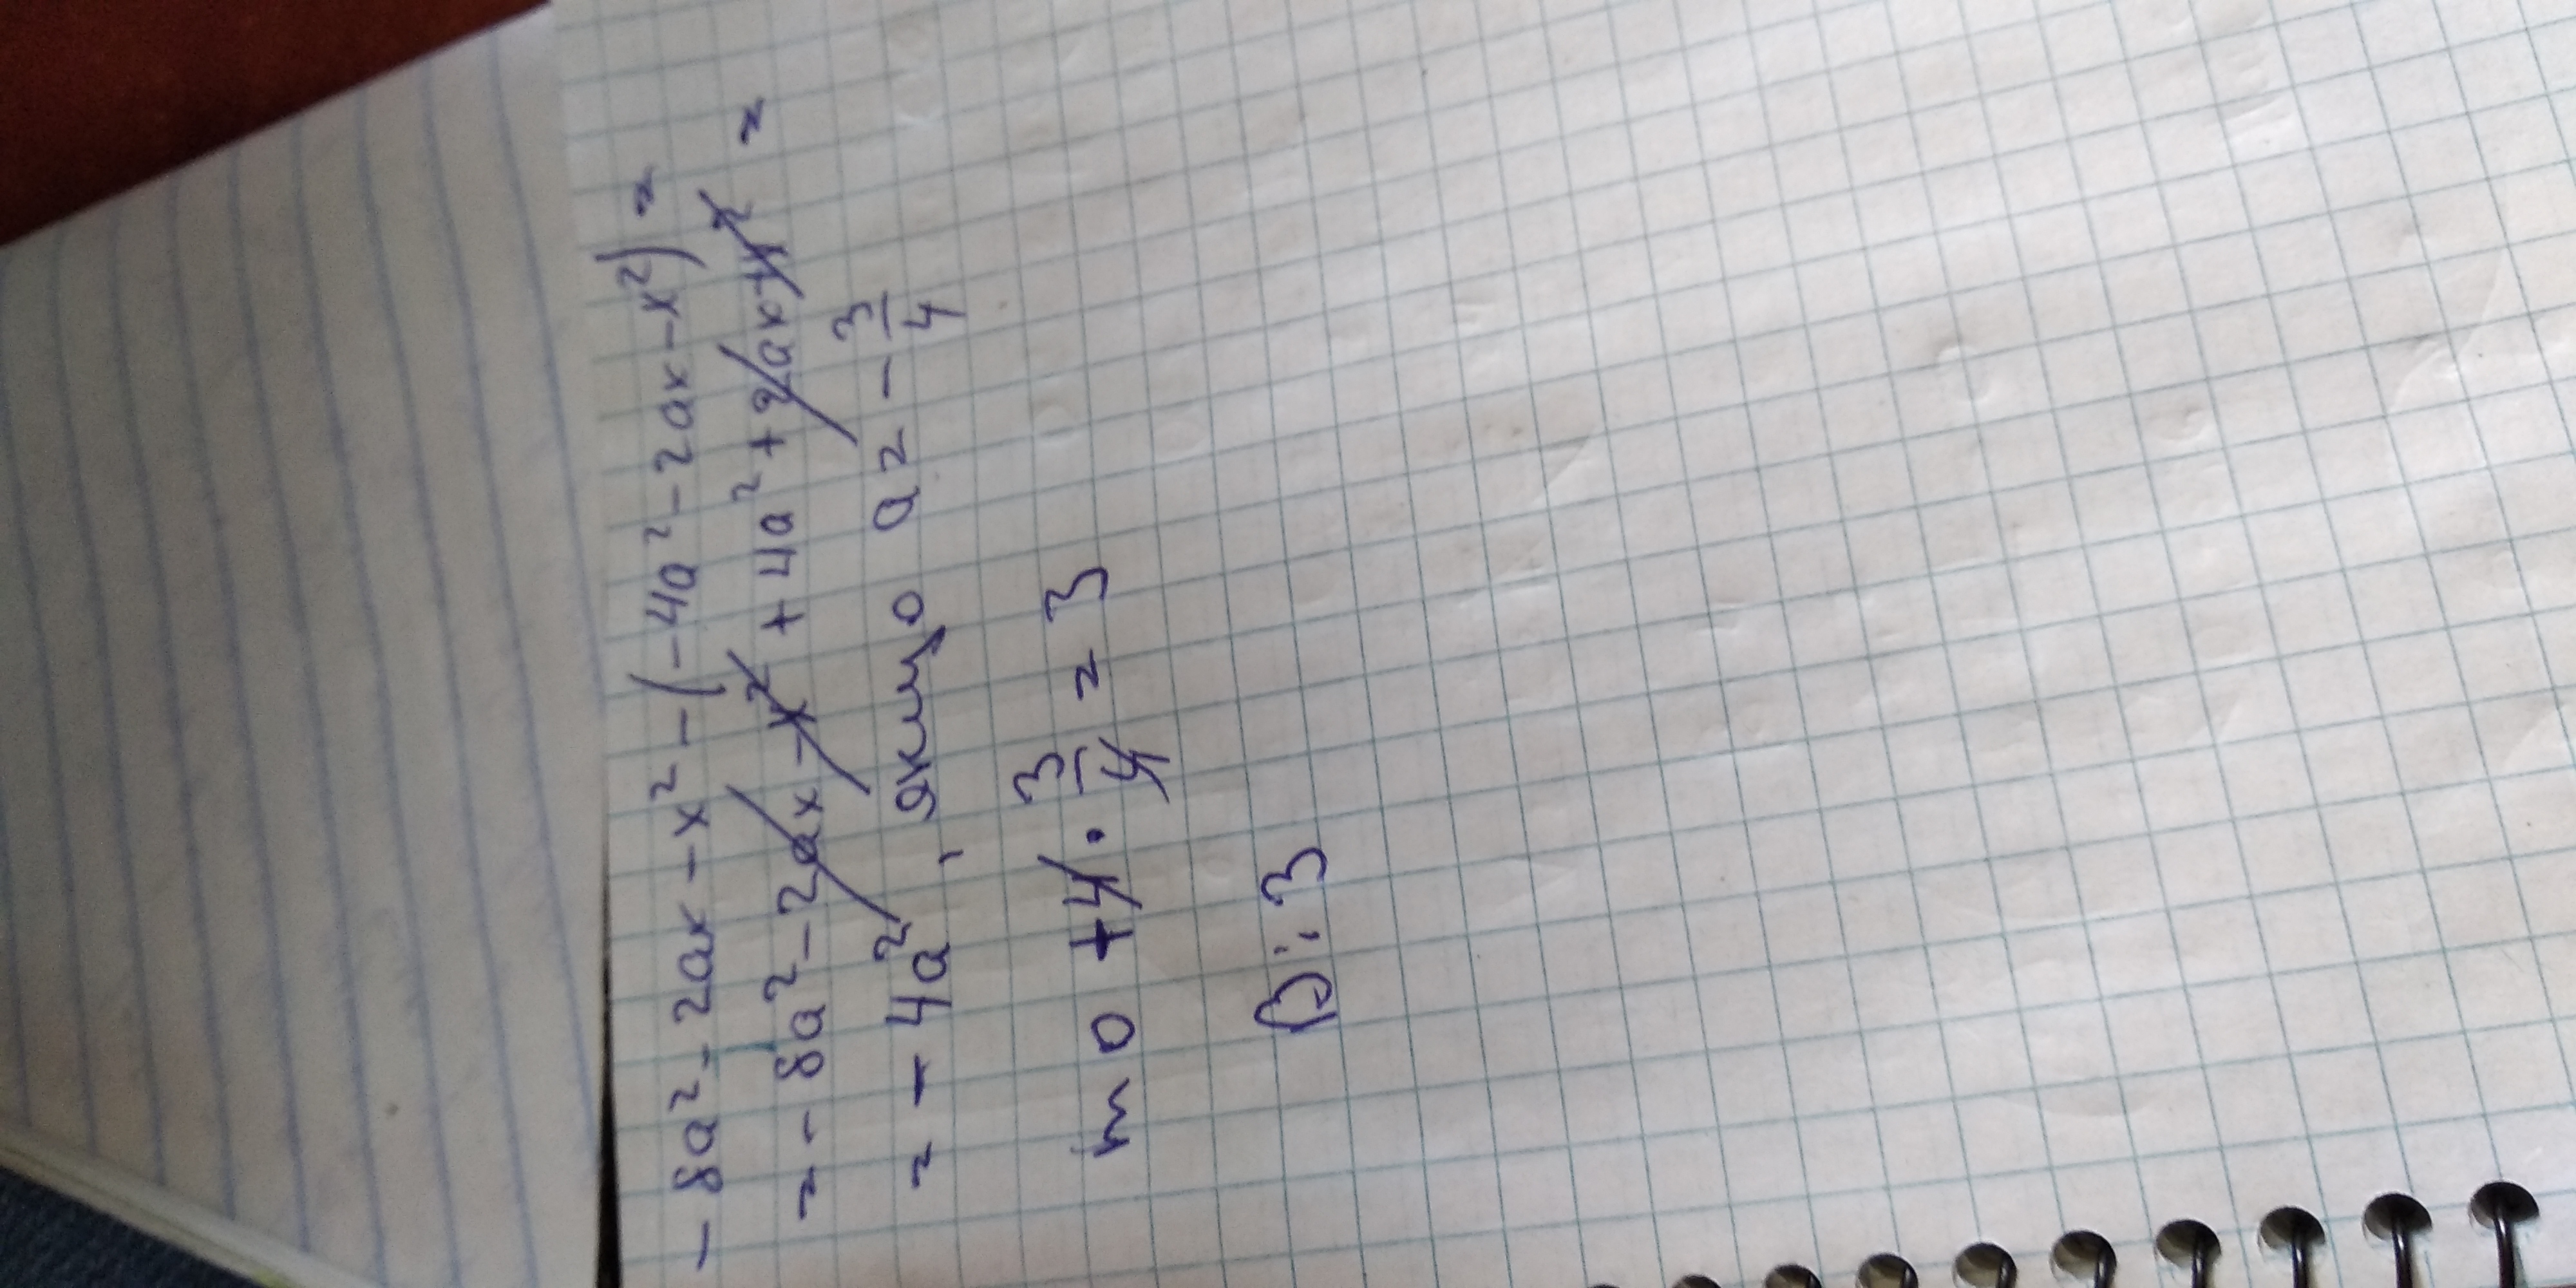 - 8a² - 2ax - x² - (-4a² - 2ax - x²) =
= - 8a² - 2ax - x² + 4a² + 2ax + x² =
= - 4a², якщо a = - 3/4
то +4 · 3/4 = 3
В: 3